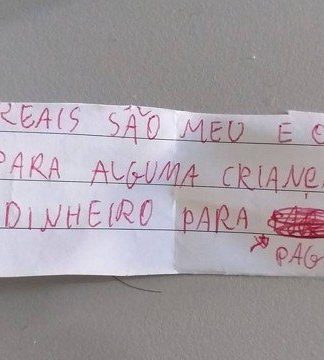 REAIS SÃO MEU E O
PARA ALGUMA CRIANÇ
DINHEIRO PARA
PAG